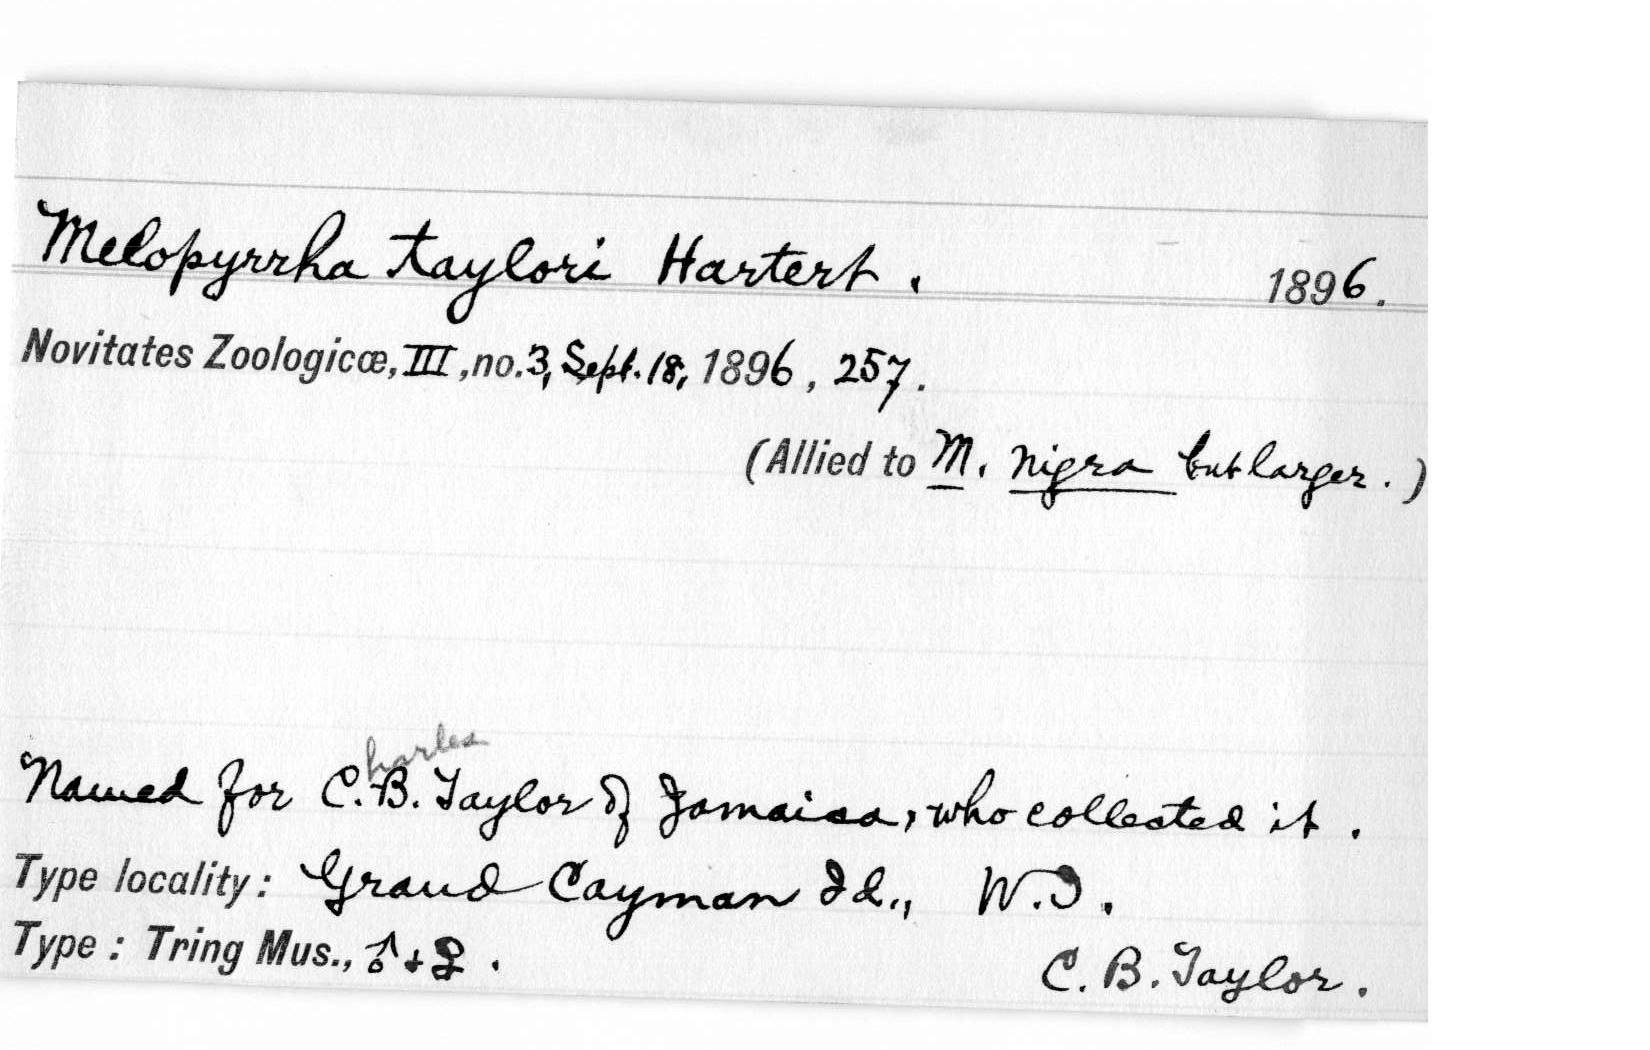 Melopyrrha taylori Hartert. 1896.
Novitates Zoologicæ, III, no. 3, Sept. 18, 1896, 257.
(Allied to M. nigra but larger.)
harles
Named for C. B. Taylor of Jamaica, who collected it.
Type locality: Grand Cayman Id., W.I.
Type: Tring Mus., ♂ + ♀.
C. B. Taylor.